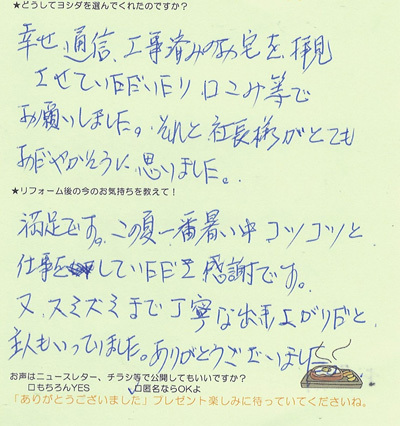 ★どうしてヨシダを選んでくれたのですか?
幸せ通信、工事済みのお宅を拝見
させていただいたり口こみ等で
お願いしました。それと社長様がとても
おだやかそうに思いました。
★リフォーム後の今のお気持ちを教えて!
満足です。この夏一番暑い中コツコツと
仕事をしていただき感謝です。
又、スミズミまで丁寧な出来上がりだと
主人もいっていました。ありがとうございました
お声はニュースレター、チラシ等で公開してもいいですか?
□もちろんYES ✓□匿名ならOKよ
「ありがとうございました」プレゼント楽しみに待っていてくださいね。